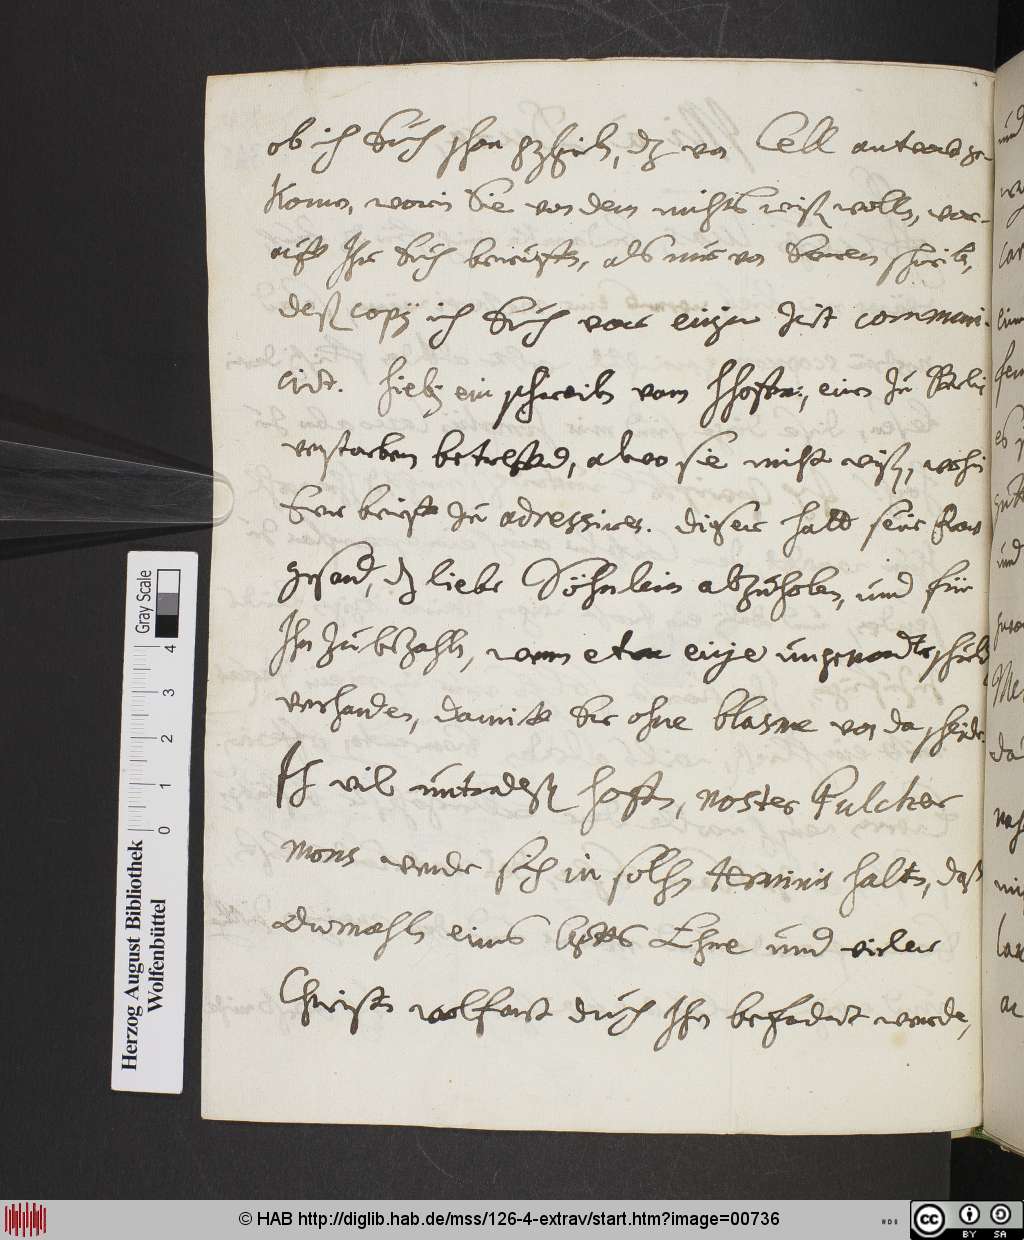 ob ich Euch schon geschrieben, dz von Cell antwort ge
kommen, worin Sie von dem nichts wissen wollen, wor-
auff Ihr Euch berufft, als nur von schreiben,
deß copÿ ich Euch vor einger Zeit communi-
cirt. hiebej ein schreiben vom eines zu
verstorben betreffend, alwo sie nicht wißen, wohin
Eur brieffe zu adressiren. dieser hatt seine Frau
gesand, dz liebe Söhnlein abzuholen, und für
Ihn zu bezahlen, wenn etwa einige schuld
verhanden, damitt Sie ohne blasme von da scheyde.
Ich will unterdeß hoffen, noster Fulcher
mons werde sich in solchen terminis halten, daß
dermahln eins Gottes Ehre und vieler
Christen wolfart durch Ihn befodert werde,
Herzog August Bibliothek
Wolfenbüttel
Gray Scale
0 1 2 3 4
© HAB http://diglib.hab.de/mss/126-4-extrav/start.htm?image=00736
cc BY SA